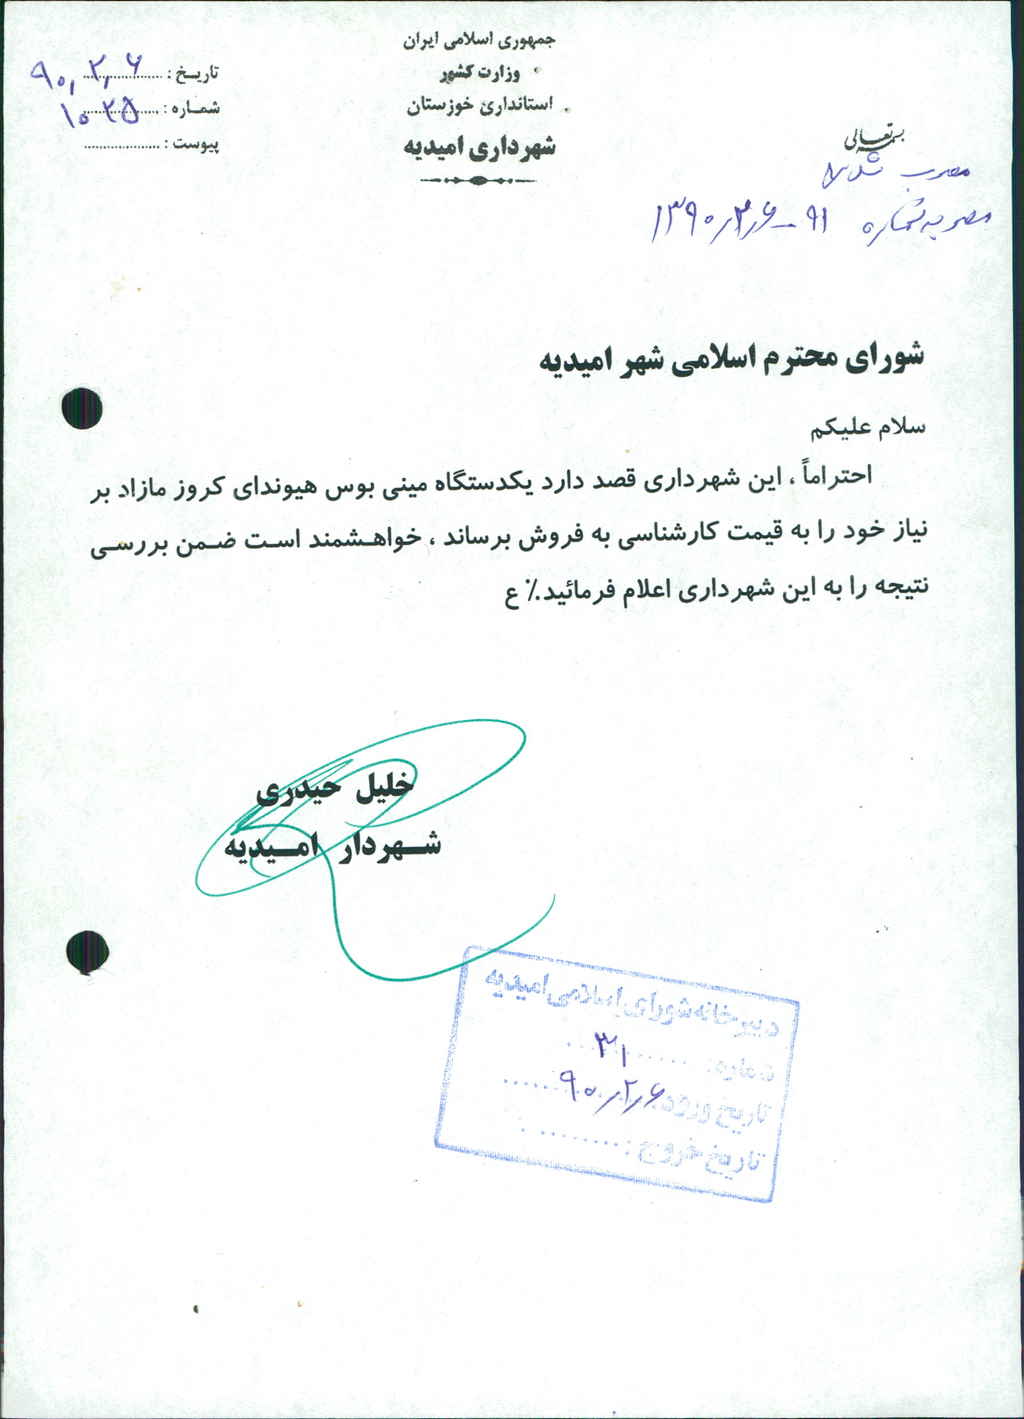 جمهوری اسلامی ایران
وزارت کشور
استانداری خوزستان
شهرداری امیدیه
تاریخ : ۹۰,۲,۶
شماره : ۱۰۲۵
پیوست :
بسمه تعالی
مصوب شد
مصوبه شماره ۹۱ - ۱۳۹۰٫۲٫۶
شورای محترم اسلامی شهر امیدیه
سلام علیکم
احتراماً ، این شهرداری قصد دارد یکدستگاه مینی بوس هیوندای کروز مازاد بر
نیاز خود را به قیمت کارشناسی به فروش برساند ، خواهشمند است ضمن بررسی
نتیجه را به این شهرداری اعلام فرمائید./ ع
خلیل حیدری
شهردار امیدیه
دبیرخانه شورای اسلامی امیدیه
شماره: ۳۱
تاریخ ورود: ۹۰٫۲٫۶
تاریخ خروج: